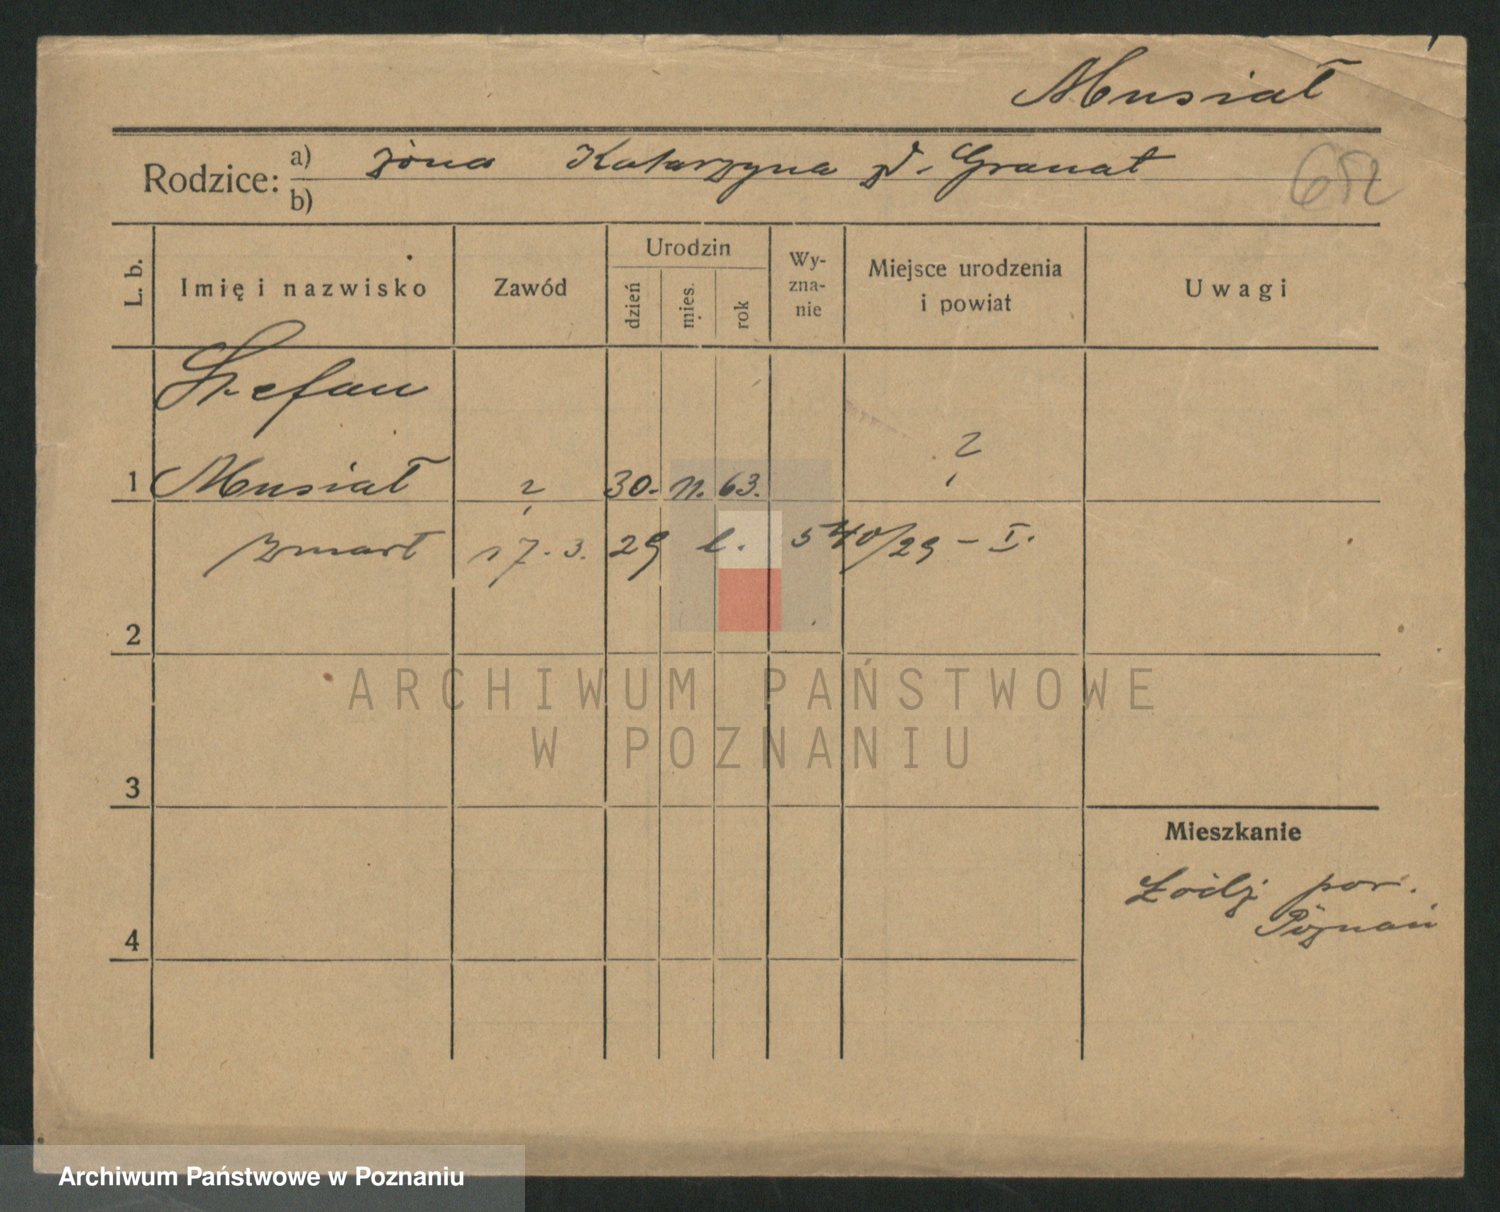 Musiał
Rodzice: a) żona Katarzyna zd. Granat
b)
652
L. b.
Imię i nazwisko
Zawód
Urodzin
dzień
mies.
rok
Wy-
zna-
nie
Miejsce urodzenia
i powiat
Uwagi
Stefan
1 Musiał ? 30. 11. 63. ?
zmarł 17. 3. 29 l. 540/29 – I.
2
3
4
Mieszkanie
Łódź pow.
Poznań
ARCHIWUM PAŃSTWOWE
W POZNANIU
Archiwum Państwowe w Poznaniu